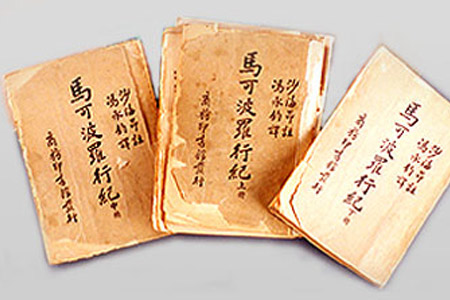 沙海昂註
馮承鈞譯
馬可波羅行紀 中冊
商務印書館發行
沙海昂註
馮承鈞譯
馬可波羅行紀 上冊
商務印書館發行
沙海昂註
馮承鈞譯
馬可波羅行紀
商務印書館發行